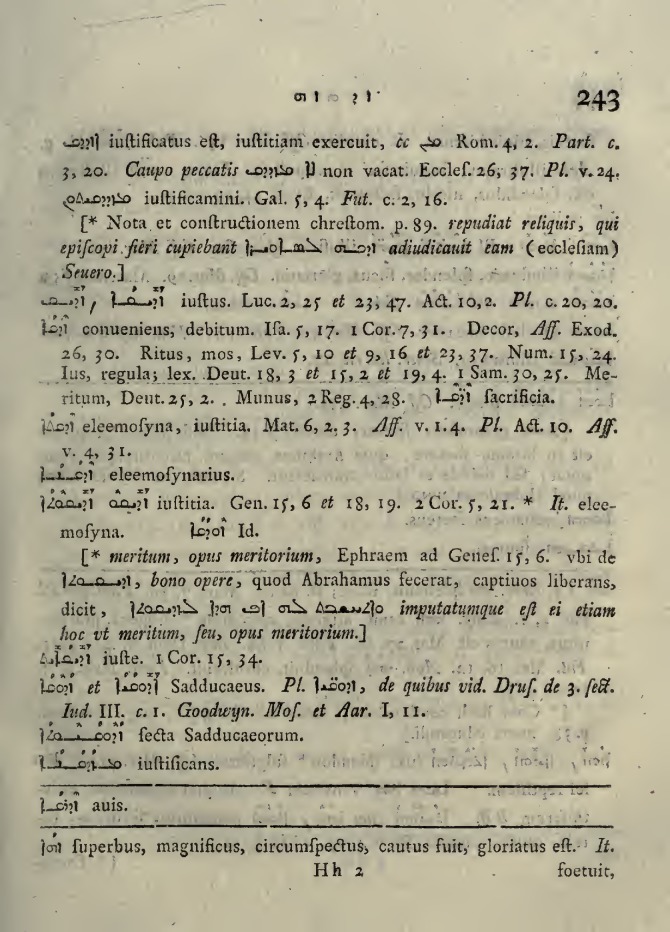 ܙܕ ܙܗ 243
ܐܙܕܕܩ iuſtificatus eſt, iuſtitiam exercuit, cc ܡܢ Rom. 4, 2. Part. c.
3, 20. Caupo peccatis ܠܐ ܡܙܕܕܩ non vacat. Eccleſ. 26, 37. Pl. v. 24.
ܡܙܕܕܩܝܬܘܢ iuſtificamini. Gal. 5, 4. Fut. c. 2, 16.
[* Nota et conſtructionem chreſtom. p. 89. repudiat reliquis, qui
epiſcopi fieri cupiebant ܙܕܩܗ ܠܣܐܘܝܪܐ adiudicauit eam (eccleſiam)
Seuero.]
ܙܕܝܩ, ܙܕܝܩܐ iuſtus. Luc. 2, 25 et 23, 47. Act. 10, 2. Pl. c. 20, 20.
ܙܕܩܐ conueniens, debitum. Iſa. 5, 17. 1 Cor. 7, 31. Decor, Aff. Exod.
26, 30. Ritus, mos, Lev. 5, 10 et 9, 16 et 23, 37. Num. 15, 24.
Ius, regula; lex. Deut. 18, 3 et 15, 2 et 19, 4. 1 Sam. 30, 25. Me-
ritum, Deut. 25, 2. Munus, 2 Reg. 4, 28. ܙܕܩ̈ܐ ſacrificia.
ܙܕܩܬܐ eleemoſyna, iuſtitia. Mat. 6, 2. 3. Aff. v. 1. 4. Pl. Act. 10. Aff.
v. 4, 31.
ܙܕܩܢܐ eleemoſynarius.
ܙܕܝܩܘ ܙܕܝܩܘܬܐ iuſtitia. Gen. 15, 6 et 18, 19. 2 Cor. 5, 21. * It. elee-
moſyna. ܙܘܕܩܐ Id.
[* meritum, opus meritorium, Ephraem ad Geneſ. 15, 6. vbi de
ܙܕܝܩܘܬܐ, bono opere, quod Abrahamus fecerat, captiuos liberans,
dicit, ܘܐܬܚܫܒܬ ܠܗ ܐܦ ܗܕܐ ܠܙܕܩܘܬܐ imputatumque eſt ei etiam
hoc vt meritum, ſeu, opus meritorium.]
ܙܕܝܩܐܝܬ iuſte. 1 Cor. 15, 34.
ܙܕܘܩܐ et ܙܕܘܩܝܐ Sadducaeus. Pl. ܙܕܘ̈ܩܝܐ, de quibus vid. Druſ. de 3. ſect.
Iud. III. c. 1. Goodwyn. Moſ. et Aar. I, 11.
ܙܕܘܩܝܘܬܐ ſecta Sadducaeorum.
ܡܙܕܩܢܐ iuſtificans.
ܙܕܩܐ auis.
ܙܗܐ ſuperbus, magnificus, circumſpectus, cautus fuit, gloriatus eſt. It.
Hh 2 foetuit,